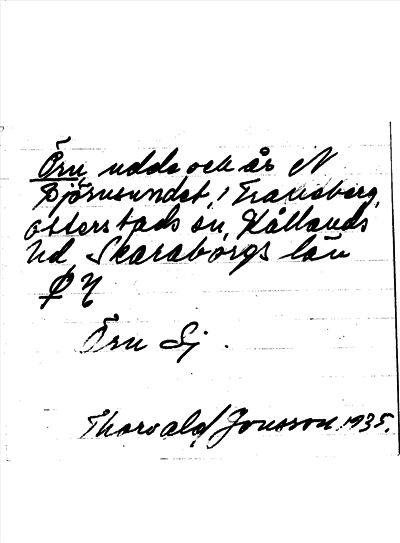 Örn, udde och är N
Björnsundet, Traneberg,
Otterstads sn, Kållands
hd, Skaraborgs län
Örn Sj.
Thorvald Jonsson 1935.